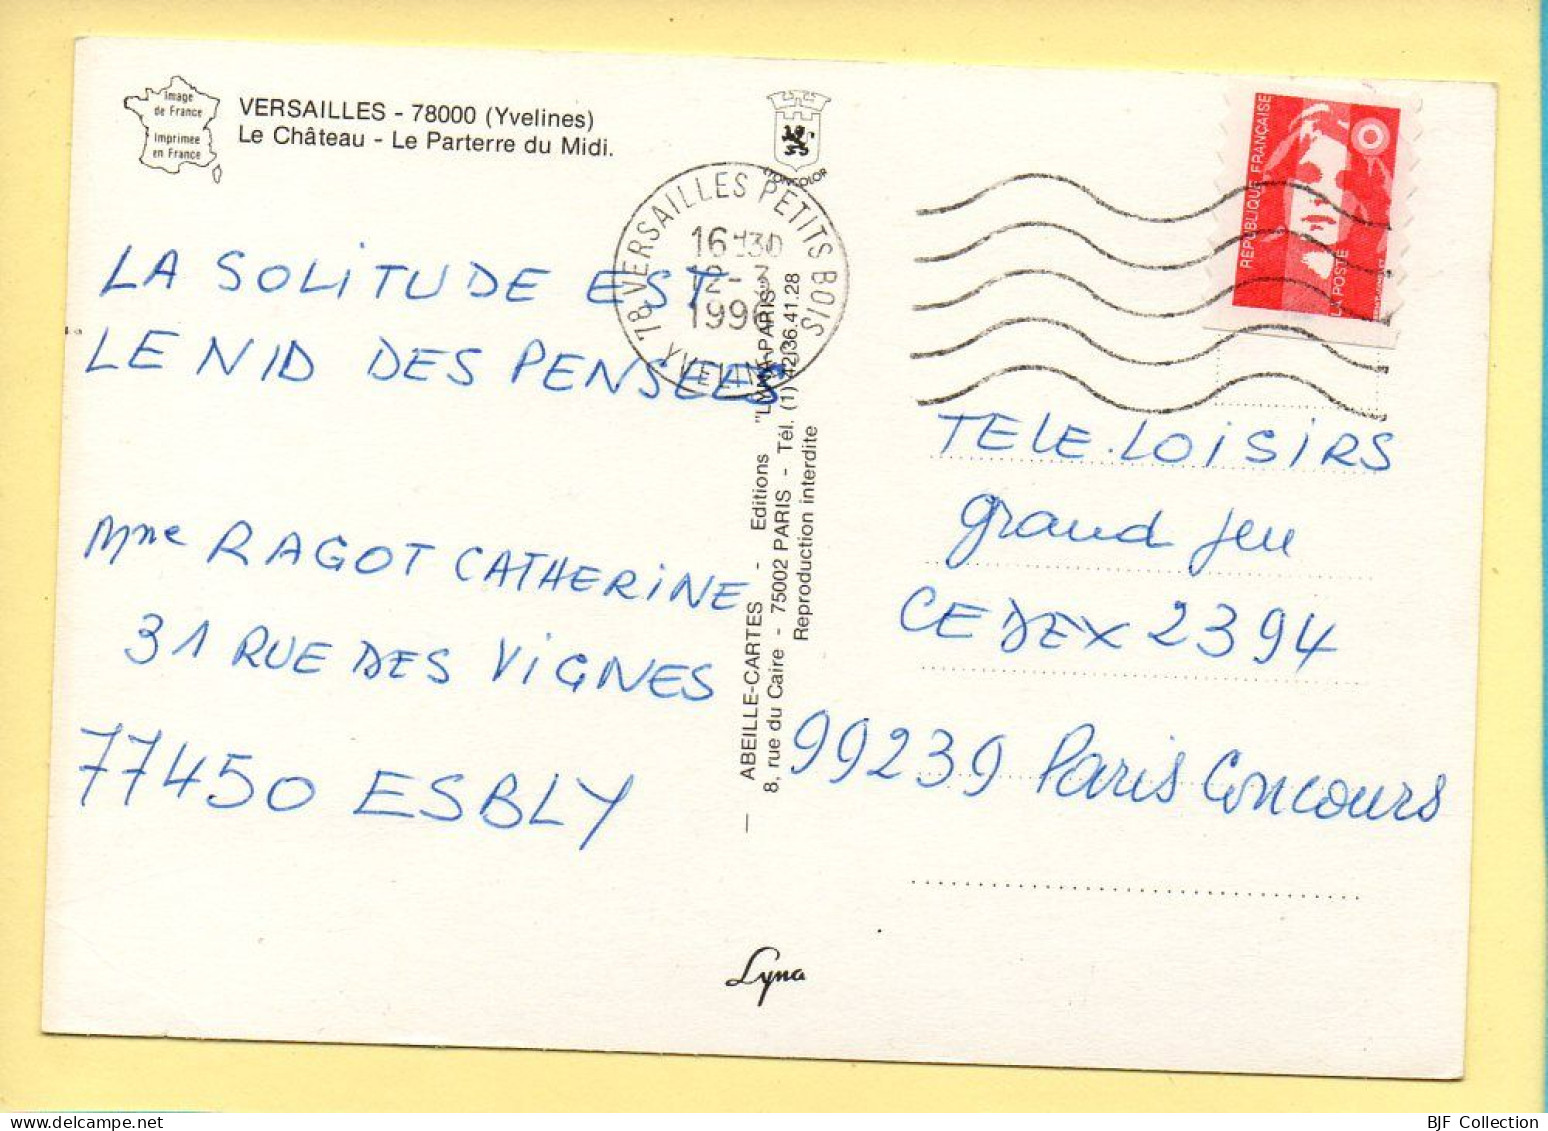 Image
de France
Imprimée
en France
VERSAILLES - 78000 (Yvelines)
Le Château - Le Parterre du Midi.
LA SOLITUDE EST
LE NID DES PENSEES
Mme RAGOT CATHERINE
31 RUE DES VIGNES
77450 ESBLY
78 VERSAILLES PETITS BOIS
16H30
12-3
1996
YVELINES
— ABEILLE-CARTES - Editions "LYNA-PARIS"
8, rue du Caire - 75002 PARIS - Tél. (1) 42.36.41.28
Reproduction interdite
RÉPUBLIQUE FRANÇAISE
LA POSTE
TELE-LOISIRS
grand jeu
CEDEX 2394
99239 Paris Concours
Lyna
BJF Collection